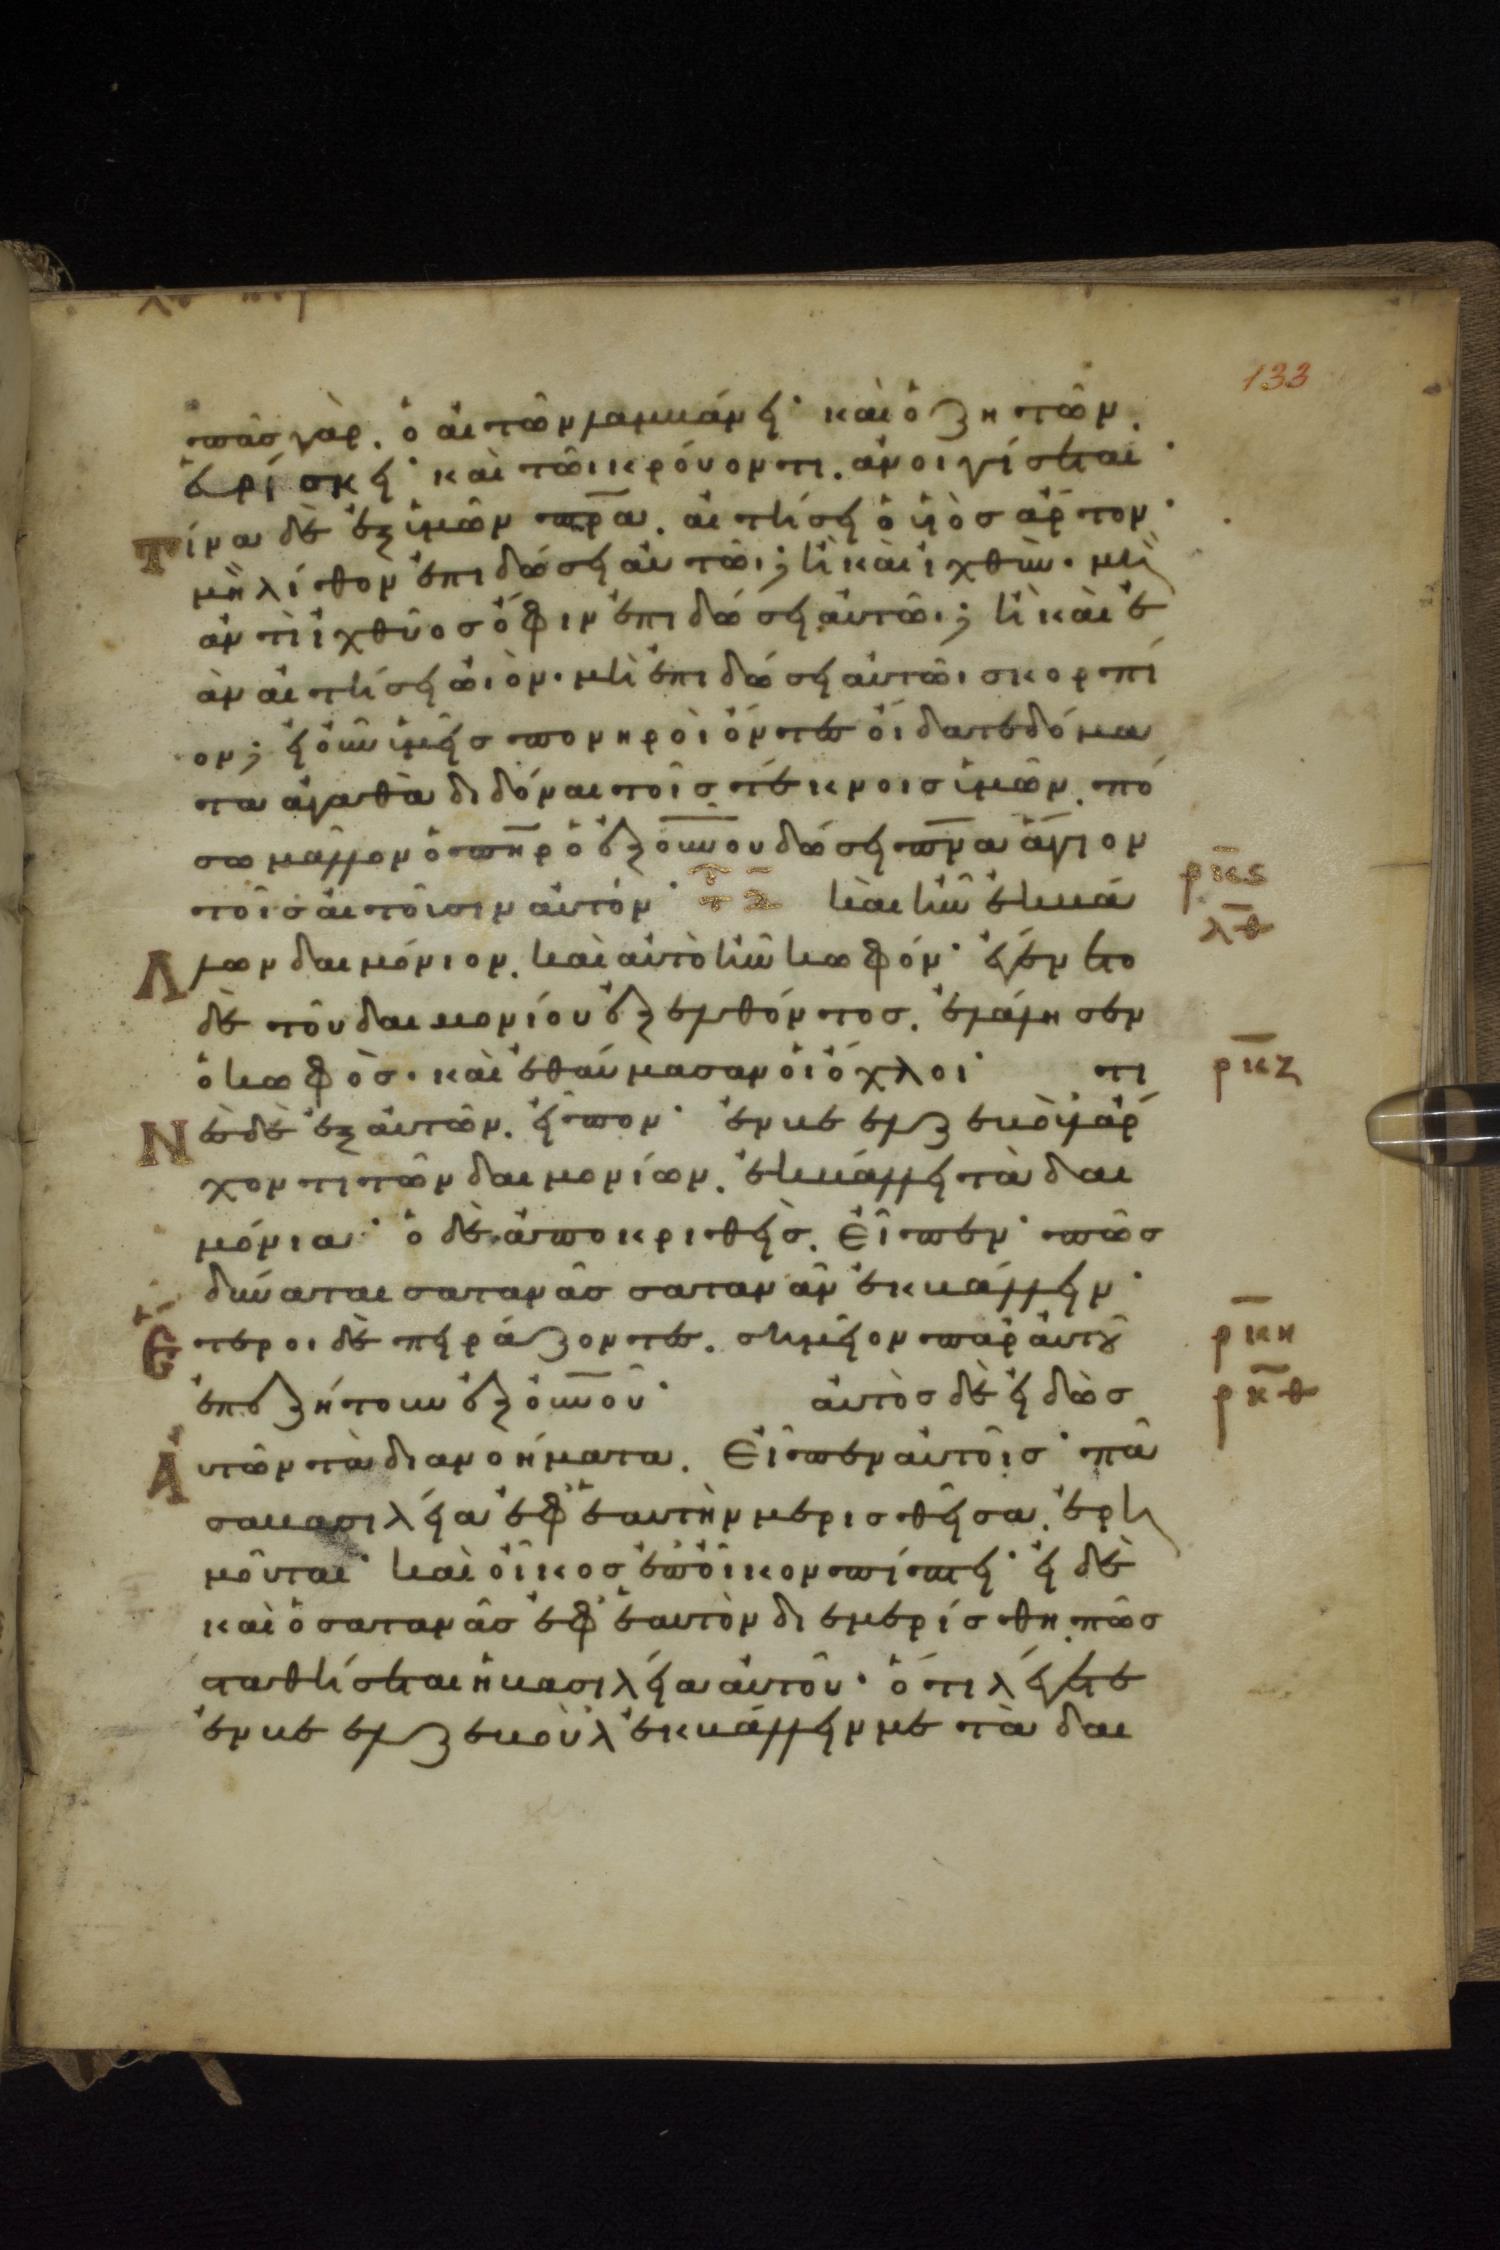 133
πᾶσ γὰρ. ὁ αἰτῶν λαμβάνει· καὶ ὁ ζητῶν.
εὑρίσκει· καὶ τῶι κρούοντι. ἀνοιγήσεται·
Τίνα δὲ ἐξ ὑμῶν π̅ρ̅α. αἰτήσει ὁ υἱὸσ ἄρτον·
μὴ λίθον ἐπιδώσει αὐτῶι; ἢ καὶ ἰχθὺν· μὴ
ἀντὶ ἰχθύοσ ὄφιν ἐπιδώσει αὐτῶι; ἢ καὶ ἐ
ὰν αἰτήσει ὠιὸν· μὴ ἐπιδώσει αὐτῶι σκορπί
ον; εἰ οὖν ὑμεῖσ πονηροὶ ὄντεσ οἴδατε δόμα
τα ἀγαθὰ διδόναι τοῖσ τέκνοισ ὑμῶν. πό
σω μᾶλλον ὁ π̅η̅ρ ὁ ἐξ ο̅υ̅ν̅ου δώσει π̅ν̅α ἅγιον
τοῖσ αἰτοῦσιν αὐτόν· καὶ ἦν ἐκβά ρ̅κ̅ς̅
λ̅θ̅
Λλων δαιμόνιον. καὶ αὐτὸ ἦν κωφόν· ἐγένετο
δὲ τοῦ δαιμονίου ἐξελθόντοσ. ἐλάλησεν
ὁ κωφὸσ· καὶ ἐθαύμασαν οἱ ὄχλοι· τι ρ̅κ̅ζ̅
Νεσ δὲ ἐξ αὐτῶν. εἶπον· ἐν βεελζεβοὺλ ἄρ
χοντι τῶν δαιμονίων. ἐκβάλλει τὰ δαι
μόνια· ὁ δὲ ἀποκριθεὶσ. Εἶπεν· πῶσ
δύναται σατανᾶσ σατανᾶν ἐκβάλλειν·
Ετεροι δὲ πειράζοντεσ. σημεῖον παρ αὐτοῦ ρ̅κ̅η̅
ἐπεζήτουν ἐξ ο̅υ̅ν̅οῦ· αὐτὸσ δὲ εἰδὼσ ρ̅κ̅θ̅
Αὐτῶν τὰ διανοήματα. Εἶπεν αὐτοῖσ· πᾶ
σα βασιλεία ἐφ ἑαυτὴν μερισθεῖσα. ἐρη
μοῦται· καὶ οἶκοσ ἐπ οἶκον πίπτει· εἰ δὲ
καὶ ὁ σατανᾶσ ἐφ ἑαυτὸν διεμερίσθη. πῶσ
σταθήσεται ἡ βασιλεία αὐτοῦ· ὅτι λέγετε
ἐν βεελζεβοὺλ ἐκβάλλειν με τὰ δαι